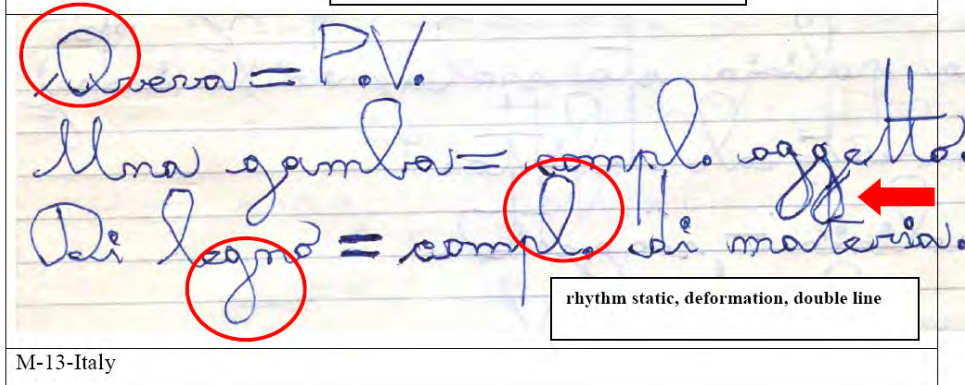 Aveva = P.V.
Una gamba = compl. oggetto.
Di legno = compl. di materia.
rhythm static, deformation, double line
M-13-Italy